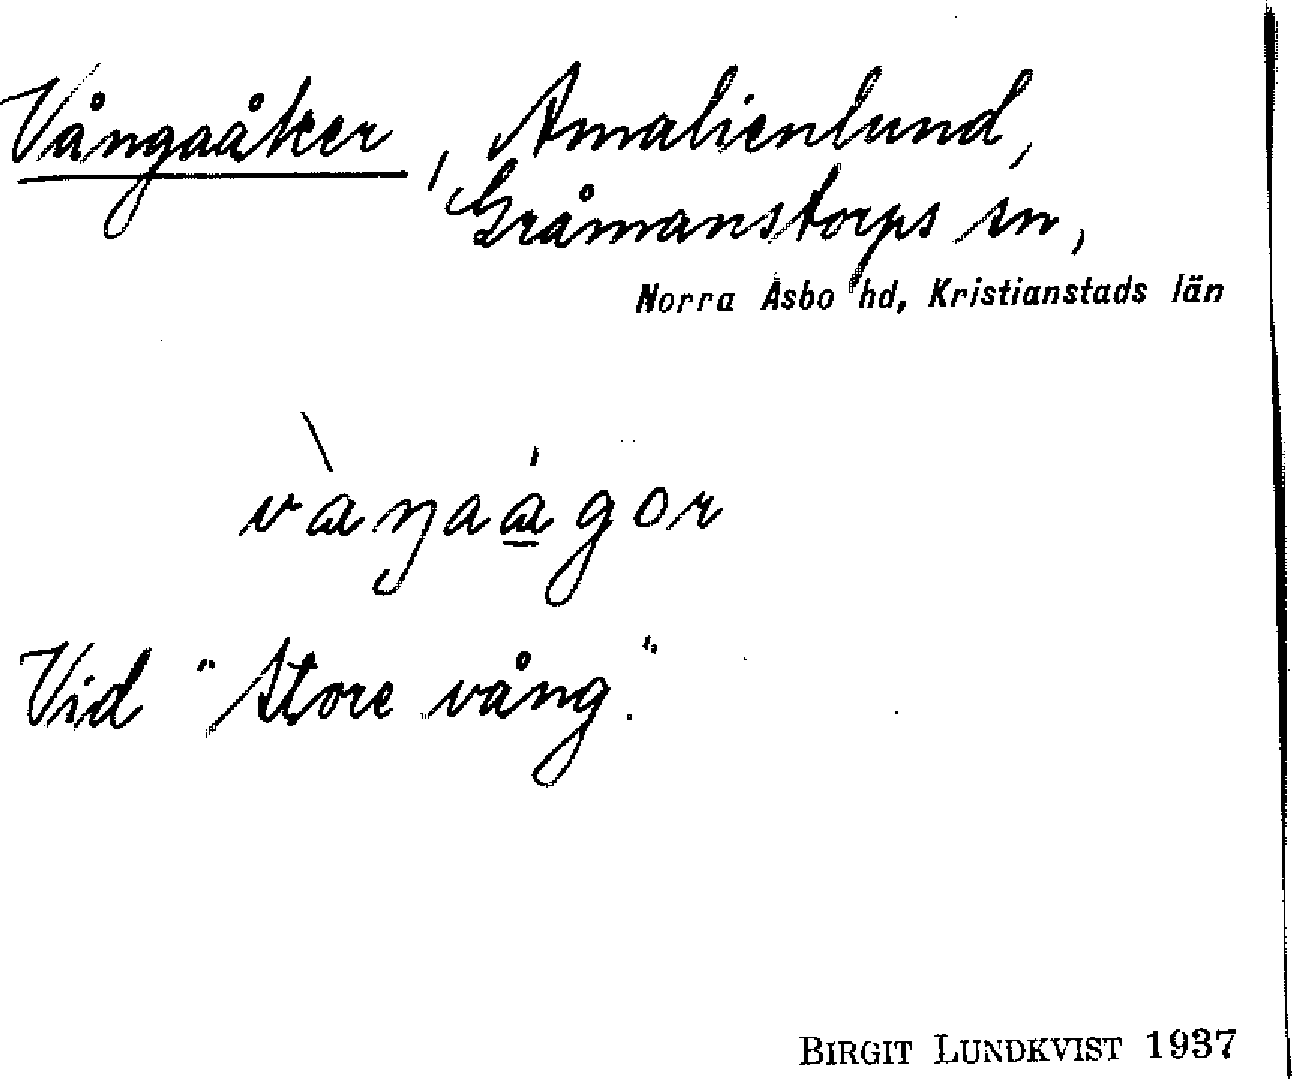 Vångaåker, Amalienlund,
Gråmanstorps sn,
Norra Åsbo hd, Kristianstads län
vàŋaágor
Vid "Store vång".
BIRGIT LUNDKVIST 1937